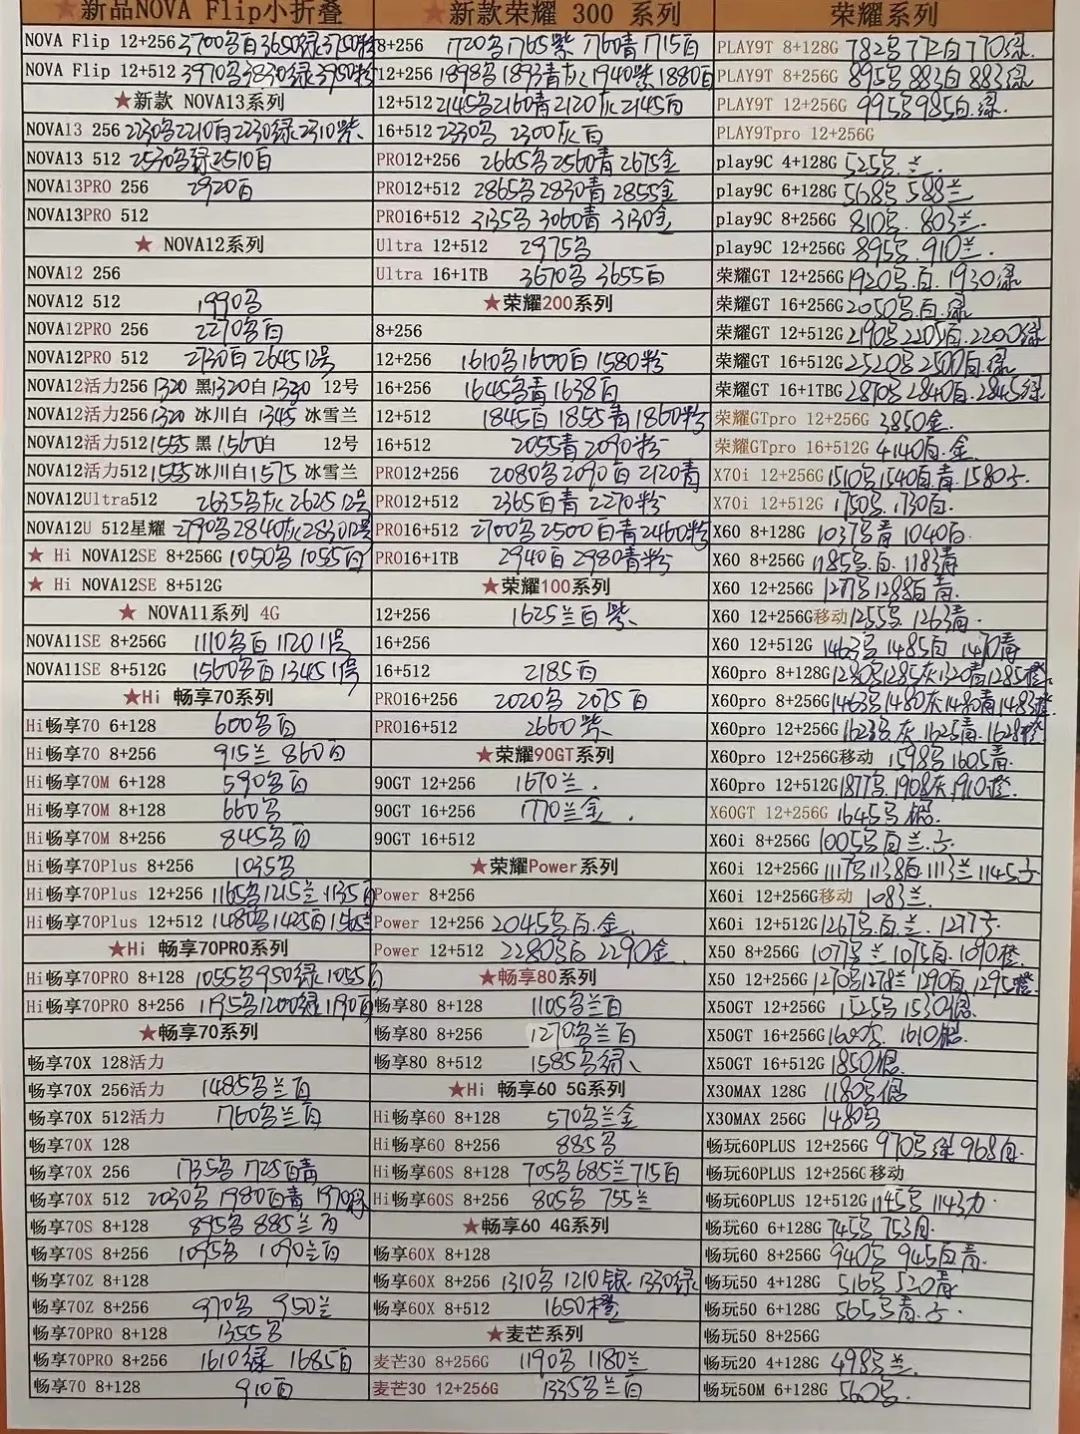 ★新品NOVA Flip小折叠
NOVA Flip 12+256 3700多白3650绿3750粉
NOVA Flip 12+512 3970多3830绿3950粉
★新款 NOVA13系列
NOVA13 256 2230多2210白2230绿2310紫、
NOVA13 512 2530多绿2510白
NOVA13PRO 256 2920白
NOVA13PRO 512
★ NOVA12系列
NOVA12 256
NOVA12 512 1990多
NOVA12PRO 256 2270多白
NOVA12PRO 512 2730白 2645 12号
NOVA12活力256 1320 黑1320白 1330 12号
NOVA12活力256 1320 冰川白 1345 冰雪兰
NOVA12活力512 1555 黑 1560白 12号
NOVA12活力512 1555 冰川白1575 冰雪兰
NOVA12Ultra512 2635多灰2625 12号
NOVA12U 512星耀 2790多2840灰2830 12号
★ Hi NOVA12SE 8+256G 1050多1055白
★ Hi NOVA12SE 8+512G
★ NOVA11系列 4G
NOVA11SE 8+256G 1110多白 1120 1号
NOVA11SE 8+512G 1560多白1345 1号
★Hi 畅享70系列
Hi畅享70 6+128 600多白
Hi畅享70 8+256 915兰 860白
Hi畅享70M 6+128 590多白
Hi畅享70M 8+128 660多
Hi畅享70M 8+256 845多白
Hi畅享70Plus 8+256 1035多
Hi畅享70Plus 12+256 1165多1215兰1135白
Hi畅享70Plus 12+512 1480多1425白1565兰
★Hi 畅享70PRO系列
Hi畅享70PRO 8+128 1055多950绿1055白
Hi畅享70PRO 8+256 1195多1200绿1190白
★畅享70系列
畅享70X 128活力
畅享70X 256活力 1485多兰白
畅享70X 512活力 1760多兰白
畅享70X 128
畅享70X 256 1735多 1725白青
畅享70X 512 2030多 1980白青 1970绿
畅享70S 8+128 895多 885兰白
畅享70S 8+256 1095多 1090兰白
畅享70Z 8+128
畅享70Z 8+256 970多 950兰
畅享70PRO 8+128 1355多
畅享70PRO 8+256 1610绿 1685白
畅享70 8+128 910白
★新款荣耀 300 系列
8+256 1720多1765紫 1760青1715白
12+256 1898多1893青灰1940紫1880白
12+512 2145多2160青2120灰2145白
16+512 2330多 2300灰白
PRO12+256 2665多2560青2675金
PRO12+512 2865多2830青2855金
PRO16+512 3135多3060青3130金
Ultra 12+512 2975多
Ultra 16+1TB 3670多 3655白
★荣耀200系列
8+256
12+256 1610多1600白1580粉
16+256 1645多青1638白
12+512 1845白 1855青1860粉
16+512 2055青2090粉
PRO12+256 2080多2090白2120青
PRO12+512 2365白青 2270粉
PRO16+512 2700多2500白青2460粉
PRO16+1TB 2940白 2980青粉
★荣耀100系列
12+256 1625兰白紫、
16+256
16+512 2185白
PRO16+256 2020多 2075白
PRO16+512 2660紫、
★荣耀90GT系列
90GT 12+256 1670兰.
90GT 16+256 1770兰金.
90GT 16+512
★荣耀Power系列
Power 8+256
Power 12+256 2045多白.金.
Power 12+512 2280多白 2290金.
★畅享80系列
畅享80 8+128 1105多兰白
畅享80 8+256 1270多兰白
畅享80 8+512 1585多绿、
★Hi 畅享60 5G系列
Hi畅享60 8+128 570多兰金
Hi畅享60 8+256 885多
Hi畅享60S 8+128 705多685兰715白
Hi畅享60S 8+256 805多 755兰
★畅享60 4G系列
畅享60X 8+128
畅享60X 8+256 1310多1210银1330绿
畅享60X 8+512 1650橙
★麦芒系列
麦芒30 8+256G 1190多 1180兰
麦芒30 12+256G 1335多兰白
荣耀系列
PLAY9T 8+128G 782多772白770绿
PLAY9T 8+256G 895多883白883绿
PLAY9T 12+256G 995多985白.绿.
PLAY9Tpro 12+256G
play9C 4+128G 525多.兰.
play9C 6+128G 568多588兰
play9C 8+256G 810多.803兰.
play9C 12+256G 895多.910兰.
荣耀GT 12+256G 1920多.白.1930绿
荣耀GT 16+256G 2050多.白.绿
荣耀GT 12+512G 2190多2205白.2200绿
荣耀GT 16+512G 2520多2500白.绿.
荣耀GT 16+1TBG 2870多2840白.2845绿
荣耀GTpro 12+256G 3850金.
荣耀GTpro 16+512G 4140白.金.
X70i 12+256G 1510多1540白.青.1580
X70i 12+512G 1750多.1730白.
X60 8+128G 1037多青 1040白.
X60 8+256G 1185多.白.1183青
X60 12+256G 1277多1288白青.
X60 12+256G移动1255多.1263青.
X60 12+512G 1463多1485白1470青
X60pro 8+128G 1230多1285灰1320青1285橙
X60pro 8+256G 1463多1480灰1480青1483橙
X60pro 12+256G 1623多灰 1625青.1628橙
X60pro 12+256G移动 1598多1605青.
X60pro 12+512G 1877多.1908灰1910橙.
X60GT 12+256G 1645多银.
X60i 8+256G 1005多白兰.
X60i 12+256G 1117多1138白1113兰1145
X60i 12+256G移动 1083兰.
X60i 12+512G 1267多.白.兰.1277
X50 8+256G 1077多兰1075白.1090橙
X50 12+256G 1270多1278兰1290白.1295橙
X50GT 12+256G 1525多1530银.
X50GT 16+256G 1600灰.1610银.
X50GT 16+512G 1850银.
X30MAX 128G 1180多银
X30MAX 256G 1480多
畅玩60PLUS 12+256G 970多绿968白.
畅玩60PLUS 12+256G移动
畅玩60PLUS 12+512G 1145多1143
畅玩60 6+128G 745多753白.
畅玩60 8+256G 940多945白青.
畅玩50 4+128G 516多520青
畅玩50 6+128G 565多青.
畅玩50 8+256G
畅玩20 4+128G 498多兰.
畅玩50M 6+128G 560多.